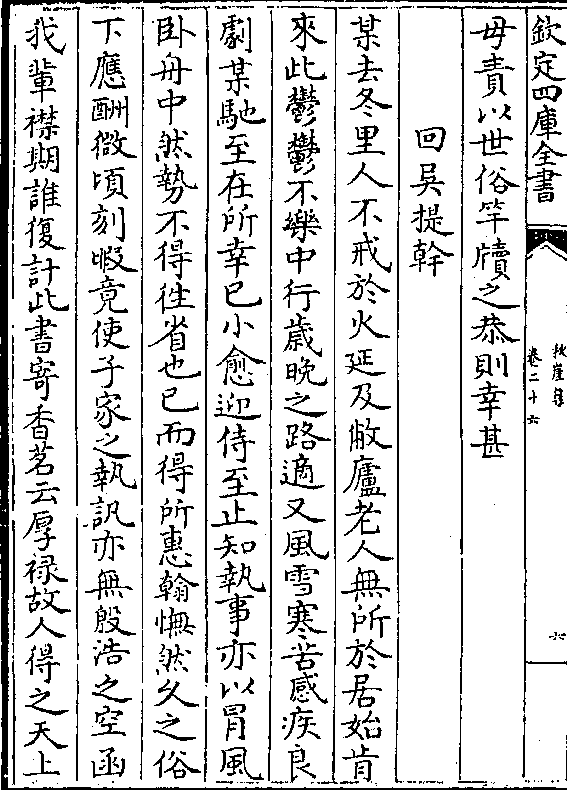 欽定四庫全書
秋崖集
卷二十六
六
毋責以世俗竿牘之恭則幸甚
回吳提幹
某去冬里人不戒於火延及敝廬老人無所於居始肯
來此鬱鬱不樂中行歲晚之路適又風雪寒苦感疾良
劇某馳至在所幸已小愈迎侍至止知執事亦以冐風
卧舟中然勢不得徃省也已而得所惠翰憮然久之俗
下應酬微頃刻暇竟使子家之執訊亦無殷浩之空函
我輩襟期誰復計此書寄香茗云厚禄故人得之天上